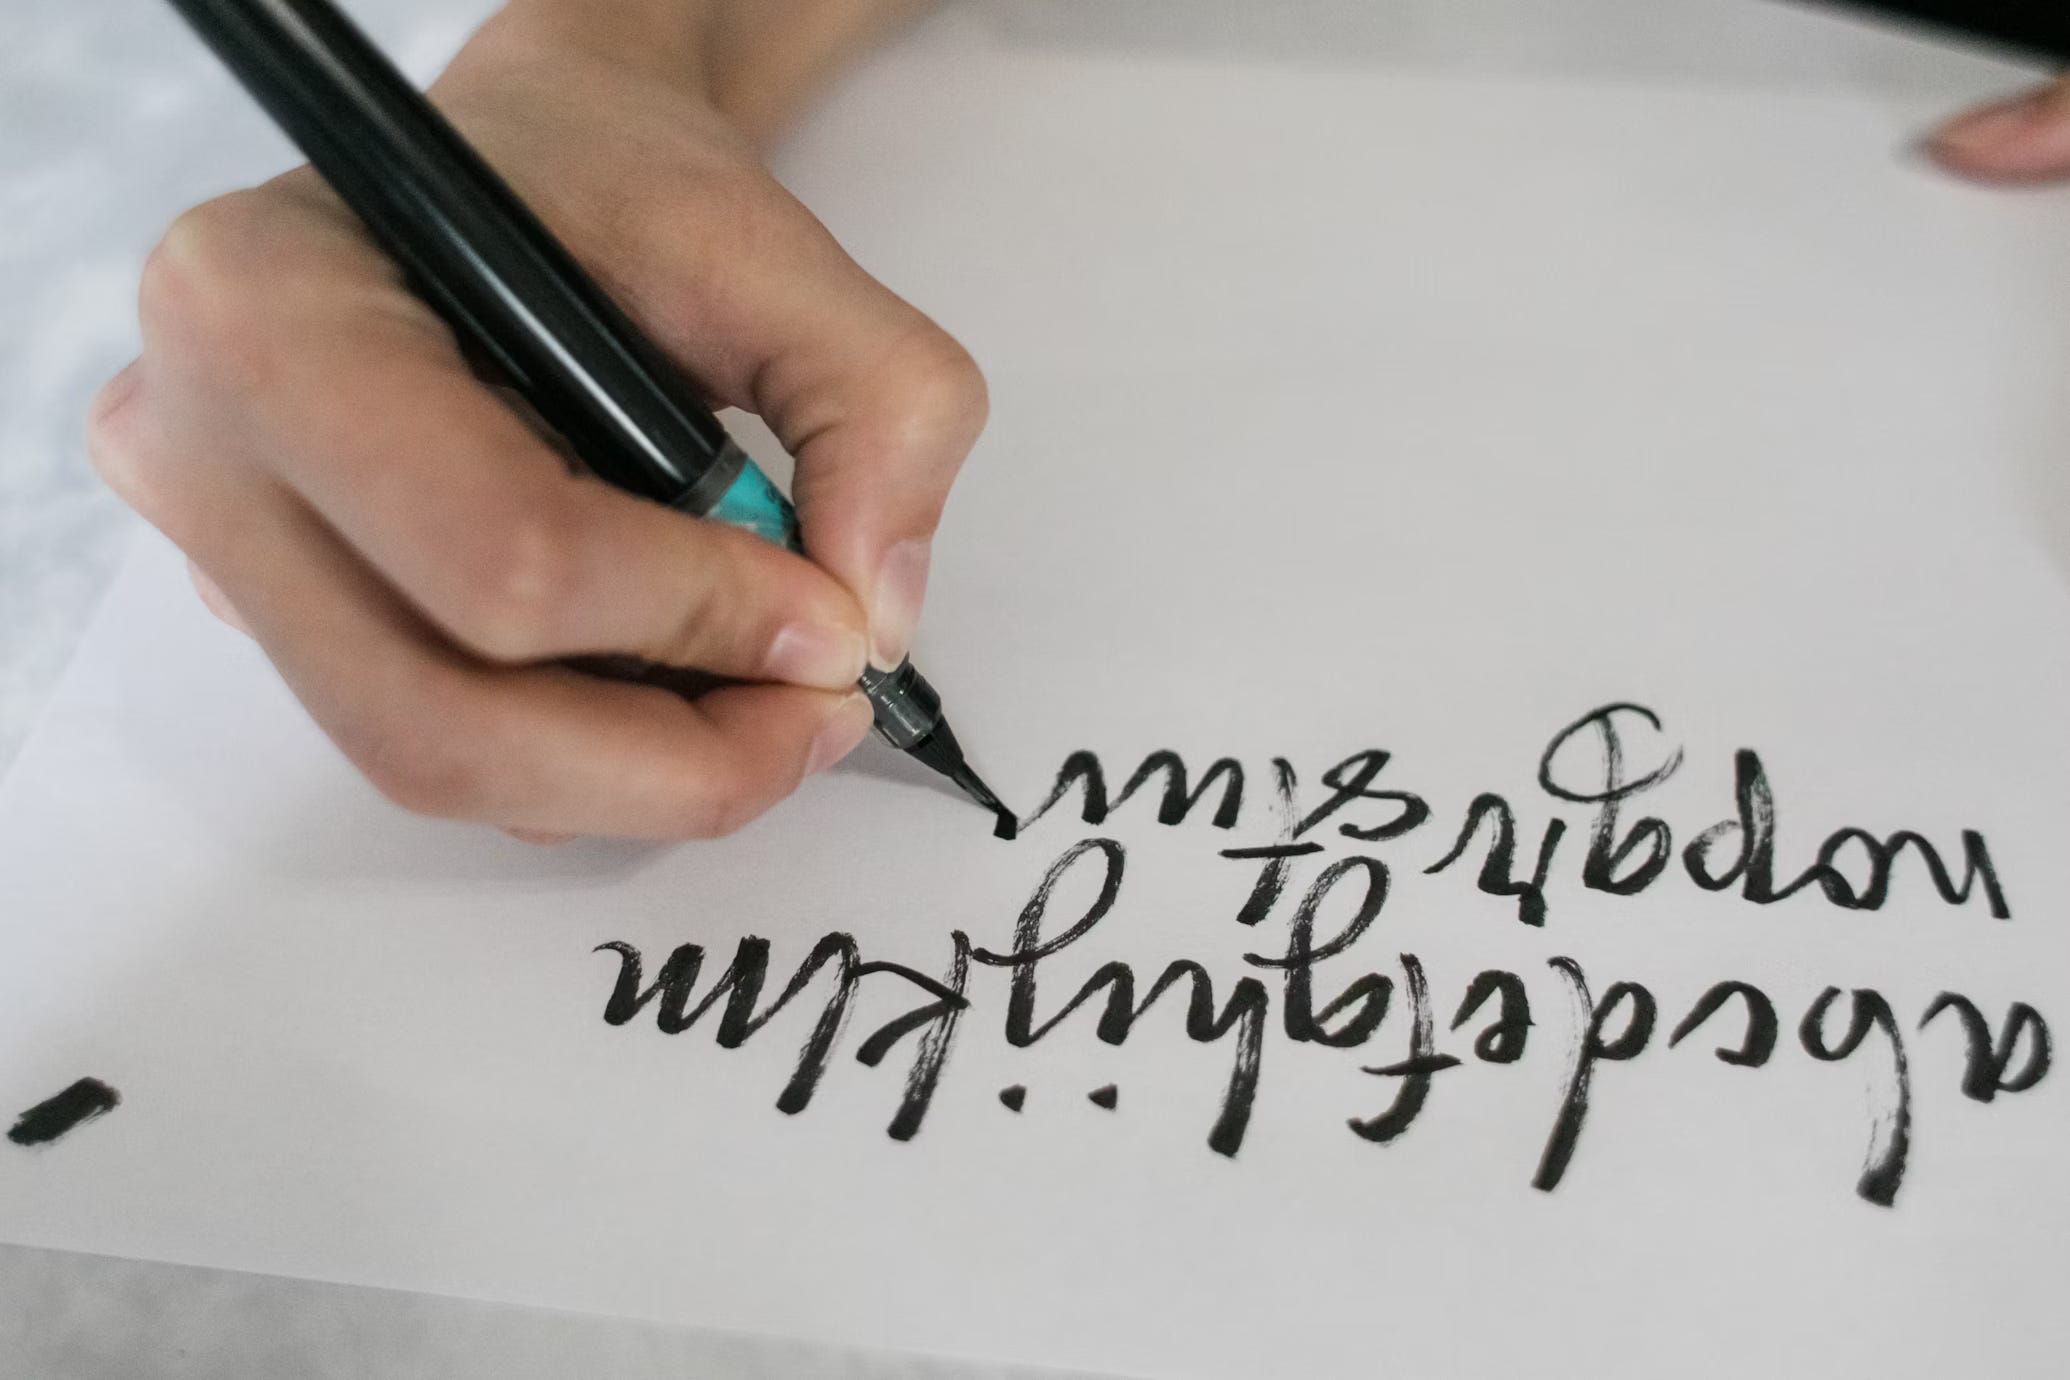 abcdefghijklm
nopqrstu